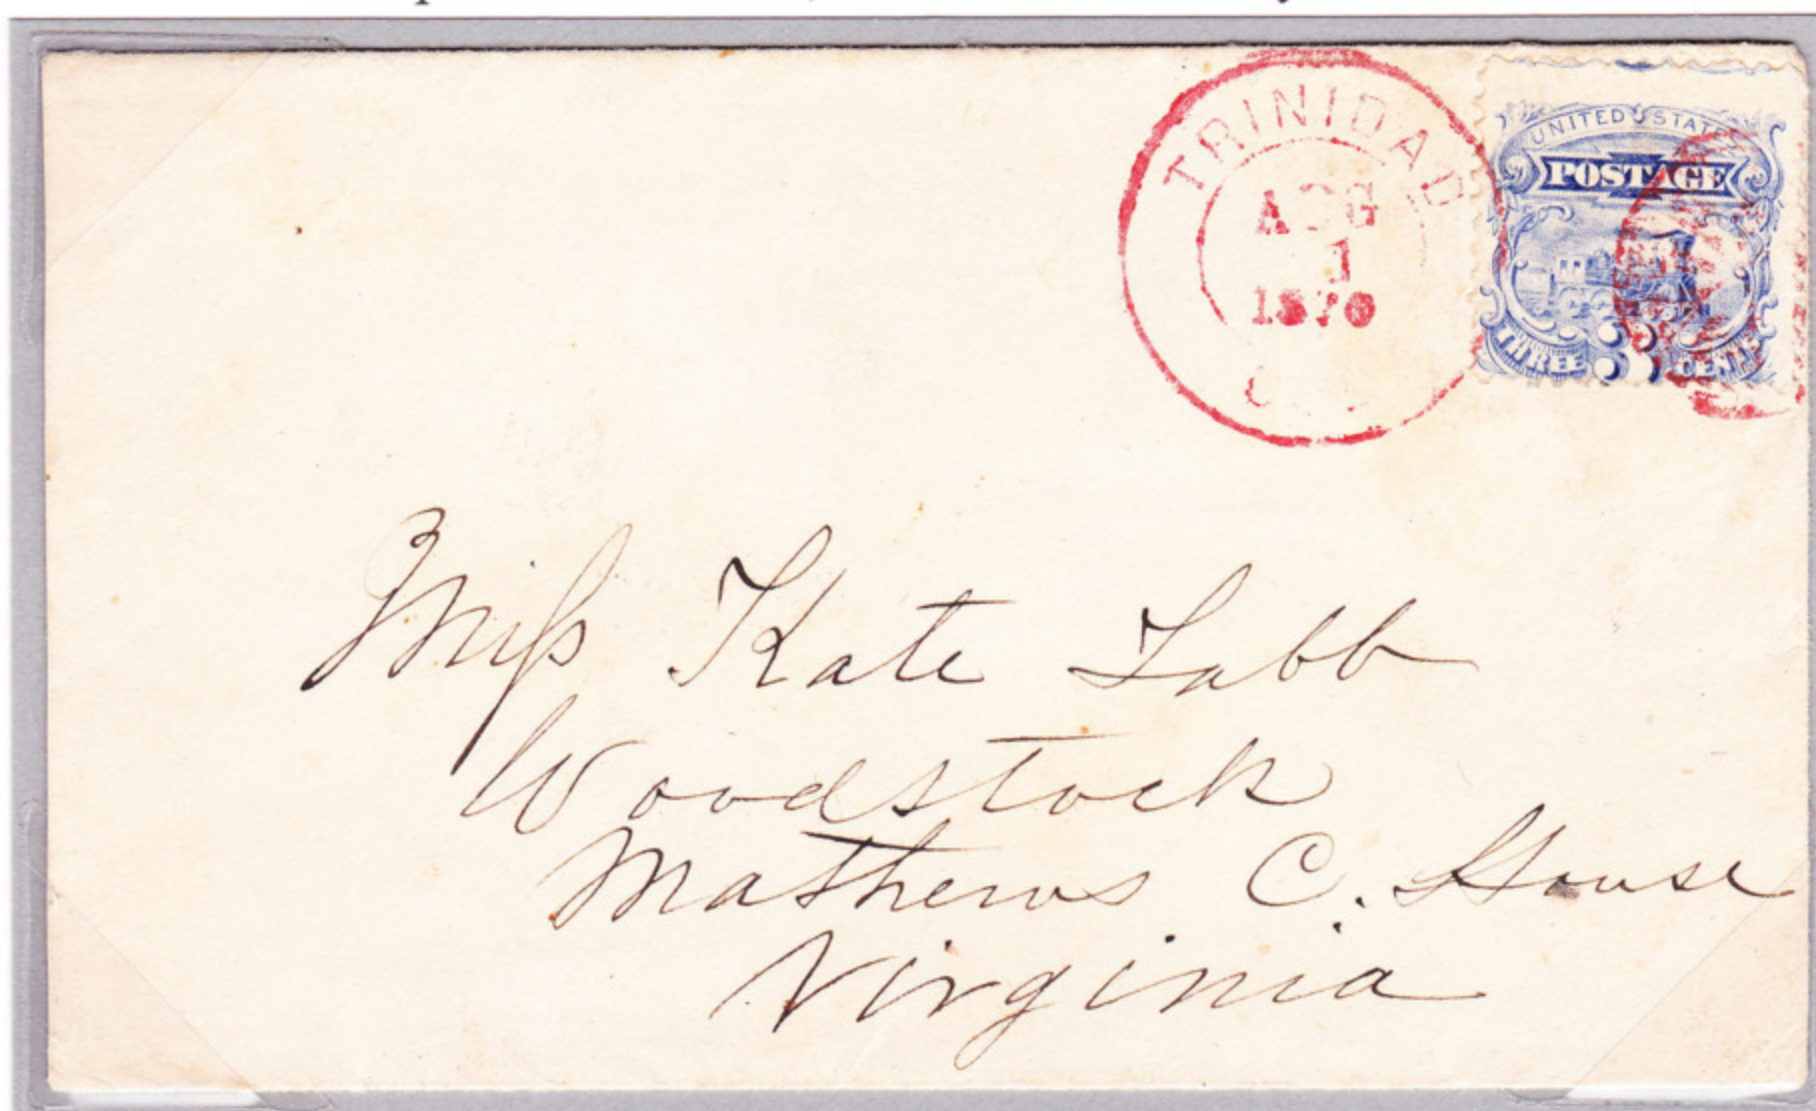 TRINIDAD
AUG
1
1870
UNITED STATES
POSTAGE
THREE 3 CENTS
Miſs Kate Tabb
Woodstock
Mathews C. House
Virginia